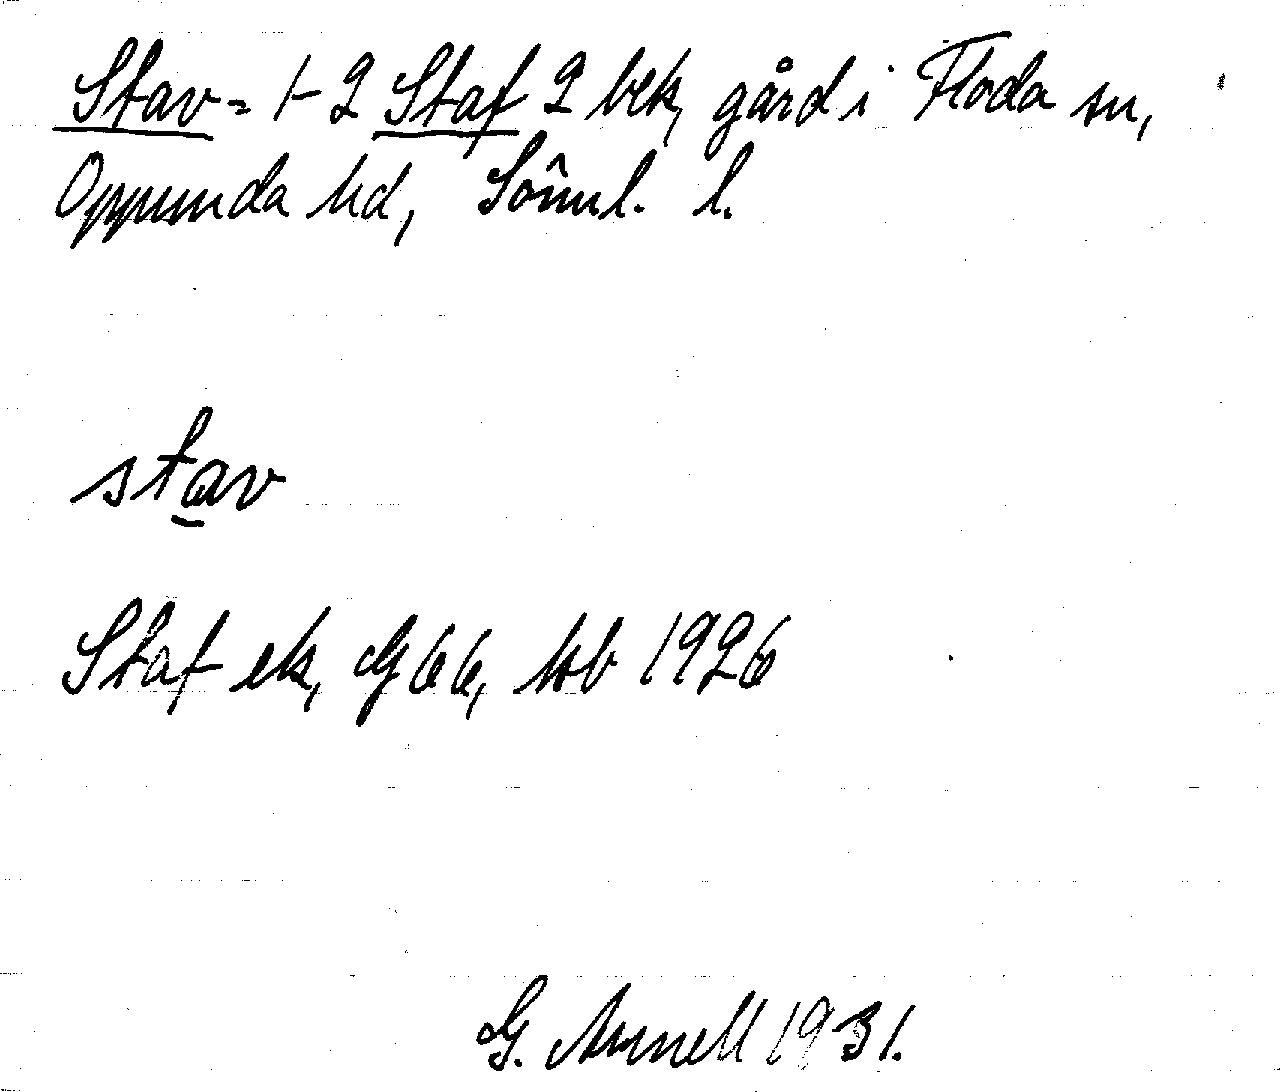 Stav = 1-2 Staf 2 bek, gård i Floda sn,
Oppunda hd, Söml. l.
stav
Staf ek, G66, hb 1926
G. Arnell 1931.